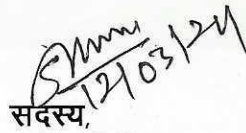 12/03/24
सदस्य,